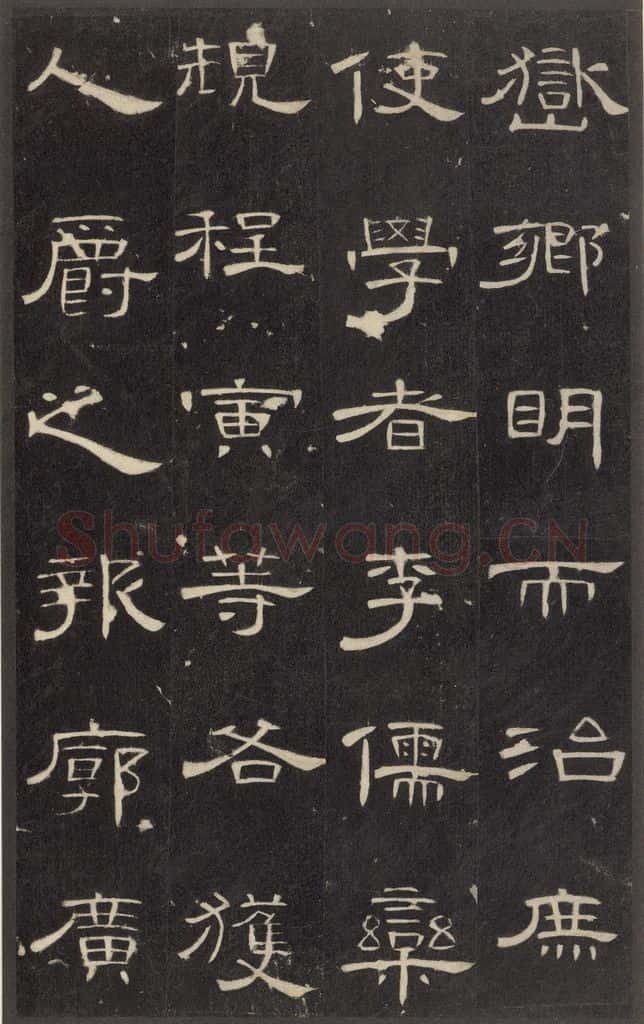 嶽鄉眀而治庶
使學者李儒欒
規程寅等各獲
人爵之報廓廣
Shufawang.CN